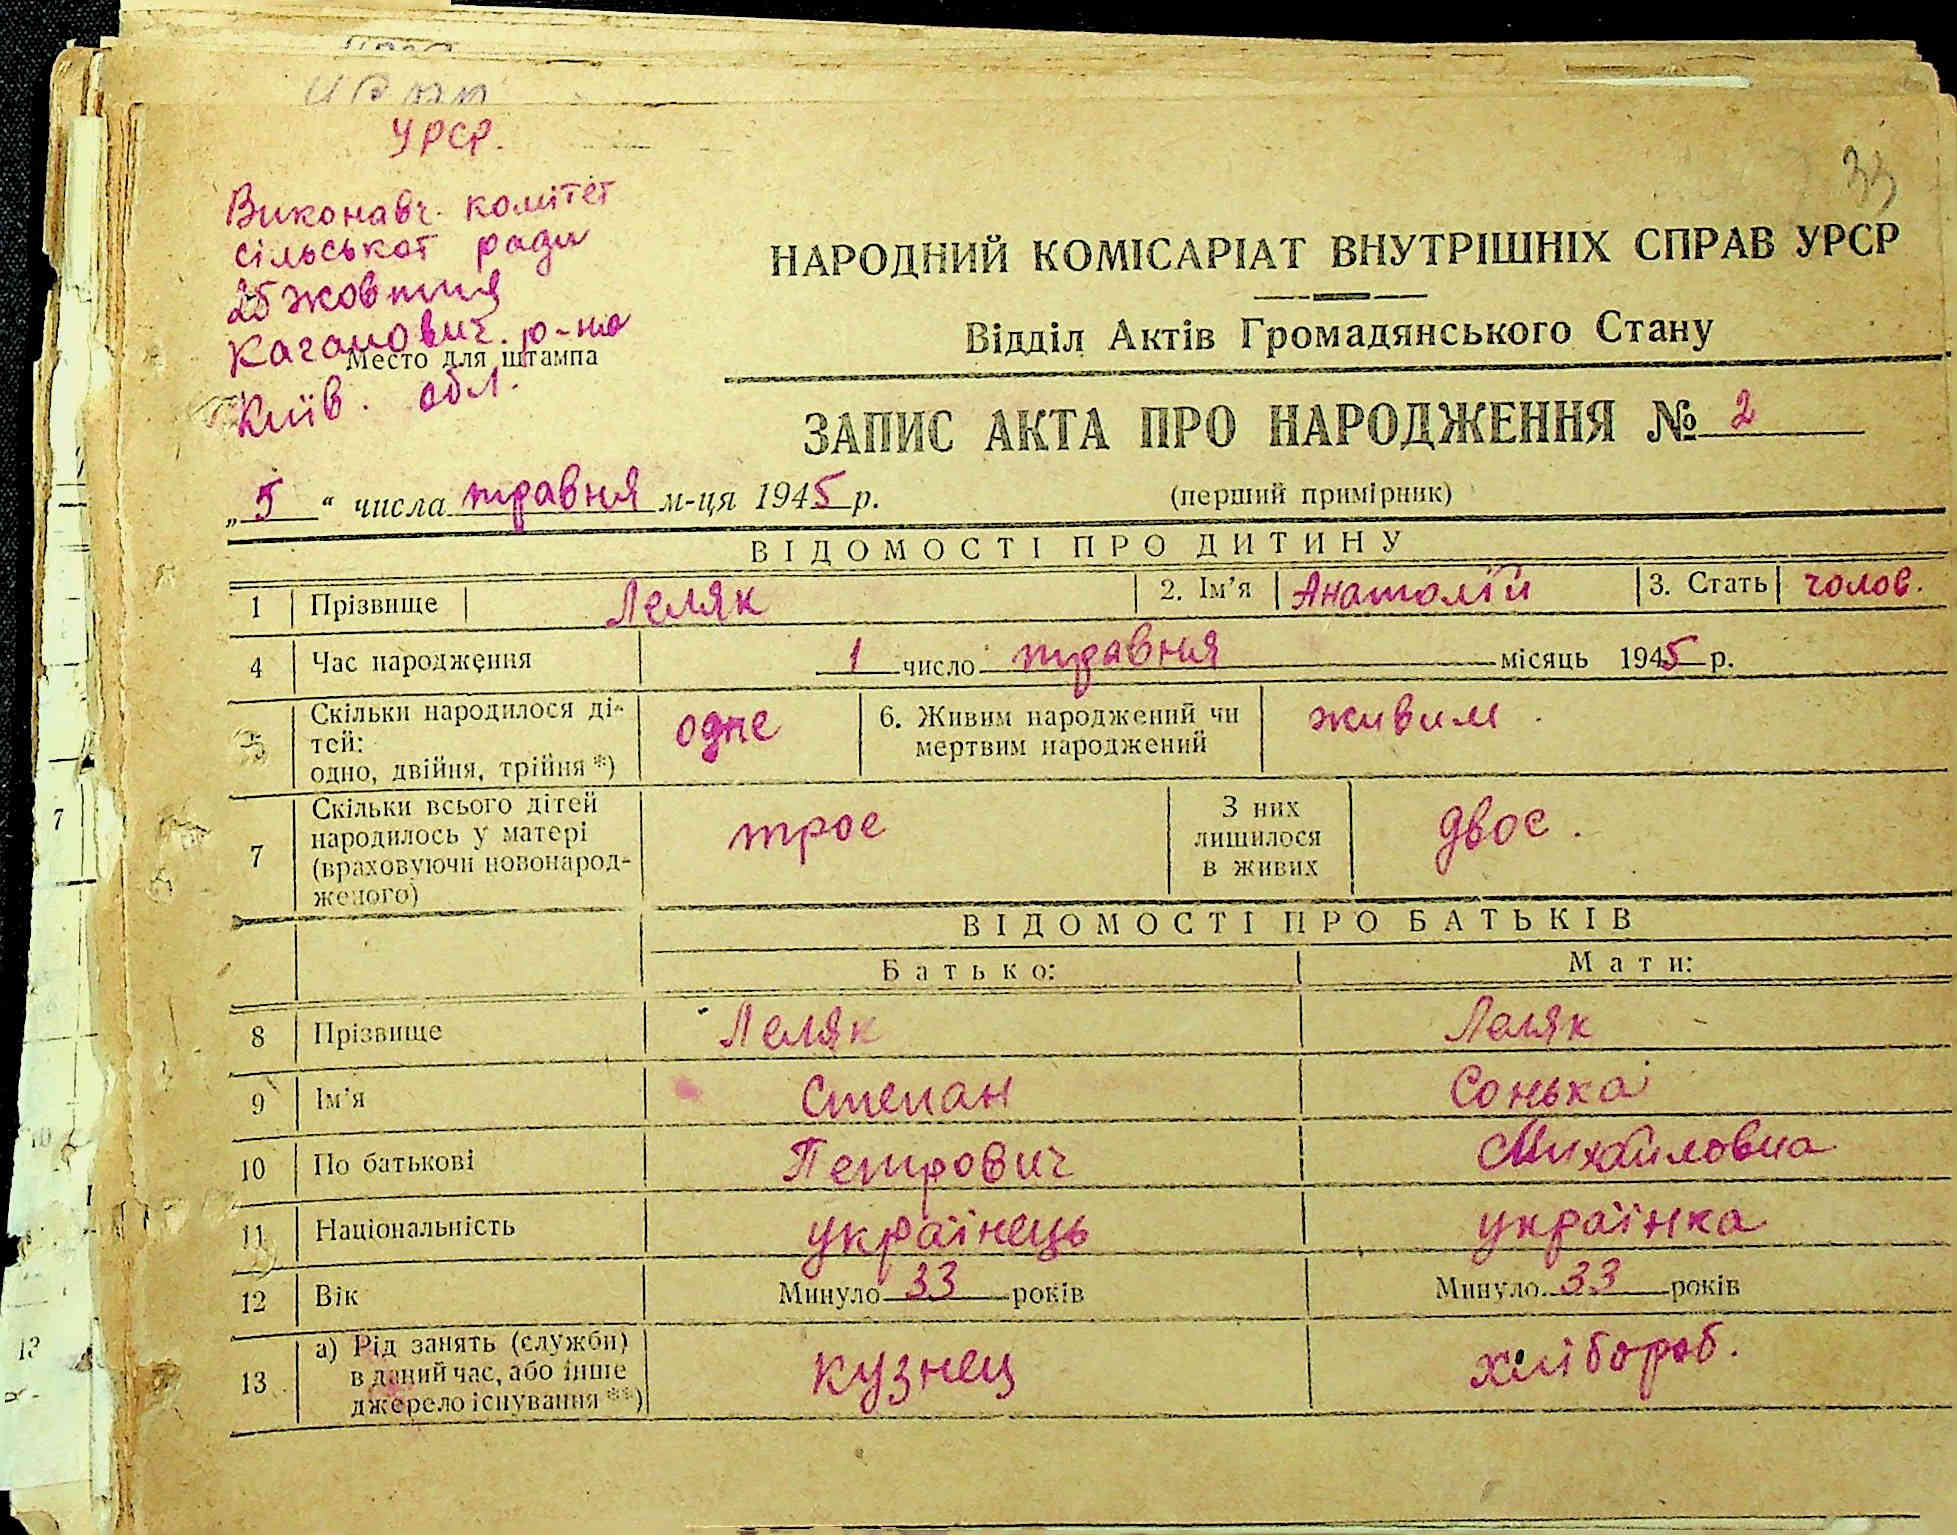 УРСР.
33
Виконавч. комітет
сільської ради
25 жовтня
Каганович. р-на
Место для штампа
Київ. обл.
НАРОДНИЙ КОМІСАРІАТ ВНУТРІШНІХ СПРАВ УРСР
Відділ Актів Громадянського Стану
ЗАПИС АКТА ПРО НАРОДЖЕННЯ № 2
„5“ числа травня м-ця 1945 р. (перший примірник)
ВІДОМОСТІ ПРО ДИТИНУ
1 Прізвище Леляк 2. Ім'я Анатолій 3. Стать чолов.
4 Час народження 1 число травня місяць 1945 р.
5 Скільки народилося ді-
тей:
одно, двійня, трійня *) одне 6. Живим народжений чи
мертвим народжений живим.
7 Скільки всього дітей
народилось у матері
(враховуючи новонарод-
женого) троє З них
лишилося
в живих двоє.
ВІДОМОСТІ ПРО БАТЬКІВ
Батько: Мати:
8 Прізвище Леляк Леляк
9 Ім'я Степан Сонька
10 По батькові Петрович Михайловна
11 Національність українець українка
12 Вік Минуло 33 років Минуло 33 років
13 а) Рід занять (служби)
в даний час, або інше
джерело існування **) кузнец хлібороб.